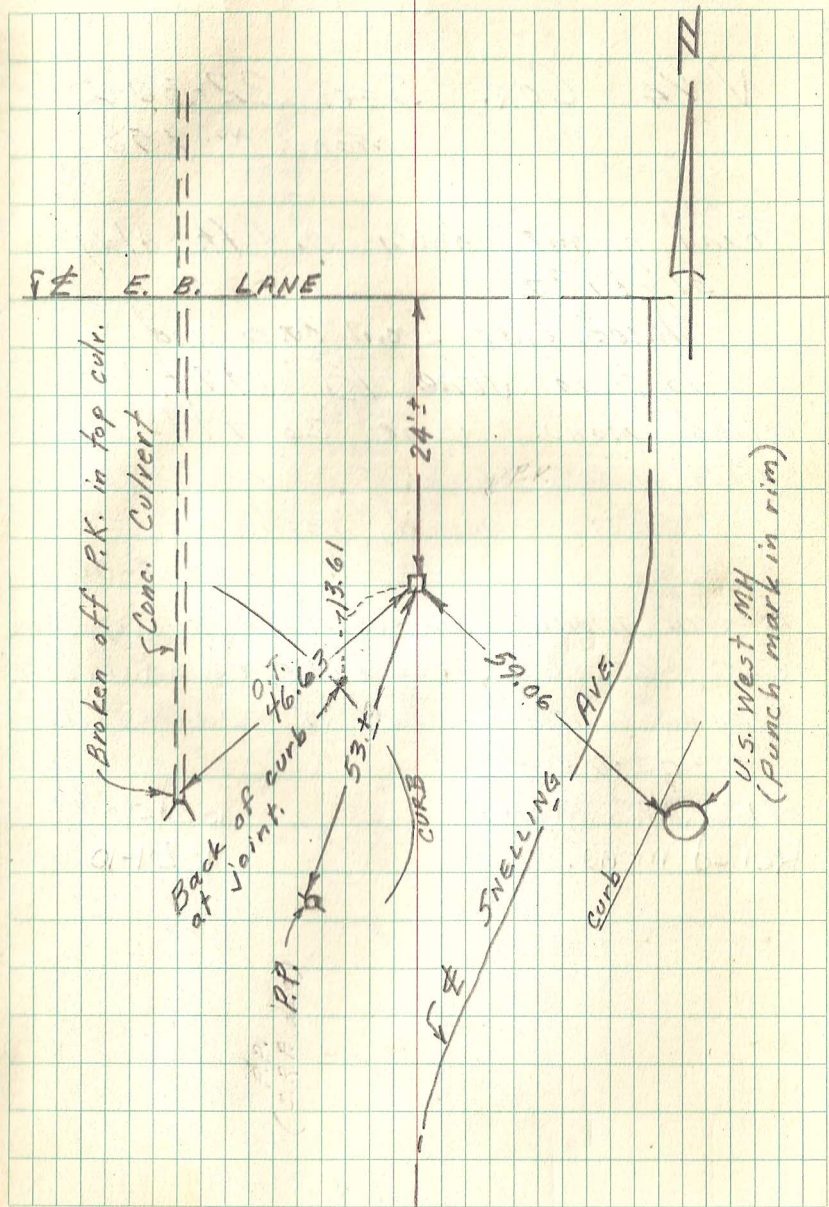 N
℄ E. B. LANE
Broken off P.K. in top culv.
Conc. Culvert
24'±
13.61
O.T.
46.63
53.±
59.06
Back of curb
at joint.
CURB
P.P.
℄ SNELLING AVE.
Curb
U.S. West MH
(Punch mark in rim)